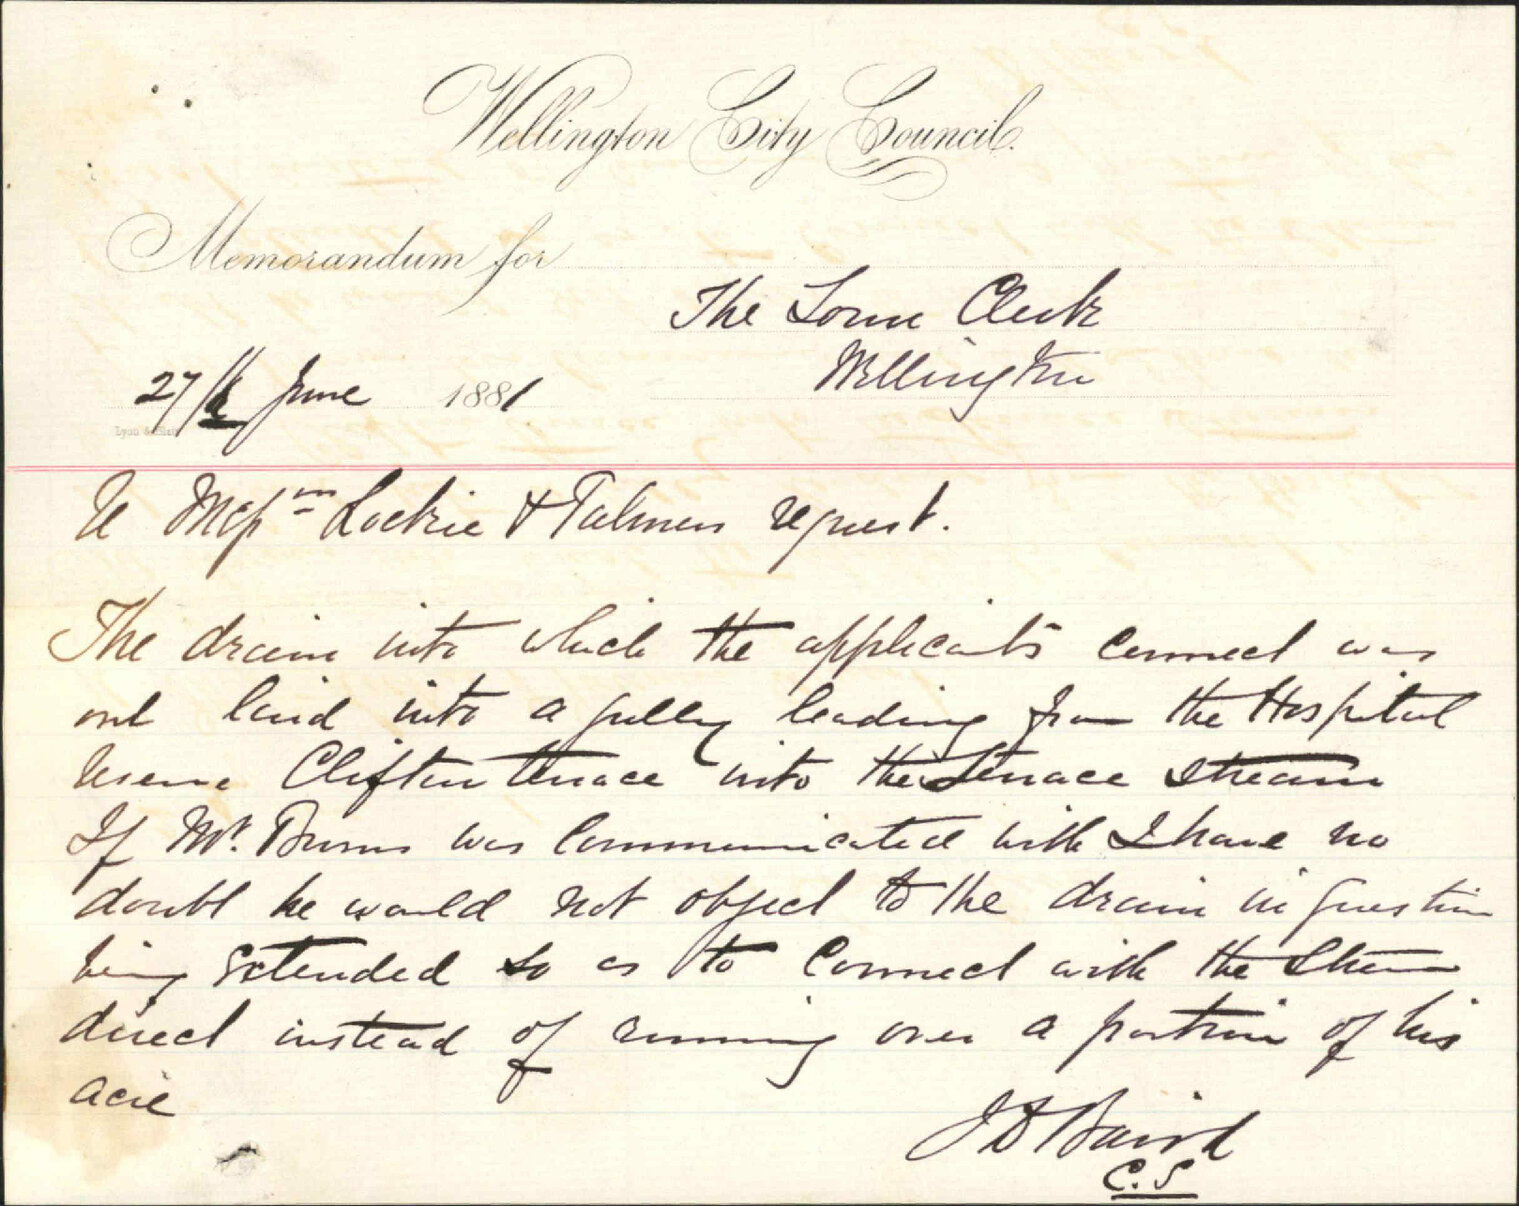 Wellington City Council.
Memorandum for
The Town Clerk
Wellington
27/ June 1881
Lyon & Blair
Re Messrs Lockie & request.
The drain into which the applicants connect was
not laid into a gully leading from the Hospital
reserve Clifton terrace into the Terrace stream
If Mr. Burns was communicated with I have no
doubt he would not object to the drain in question
being extended so as to connect with the Stream
direct instead of running over a portion of his
acre
J D Baird
C.S